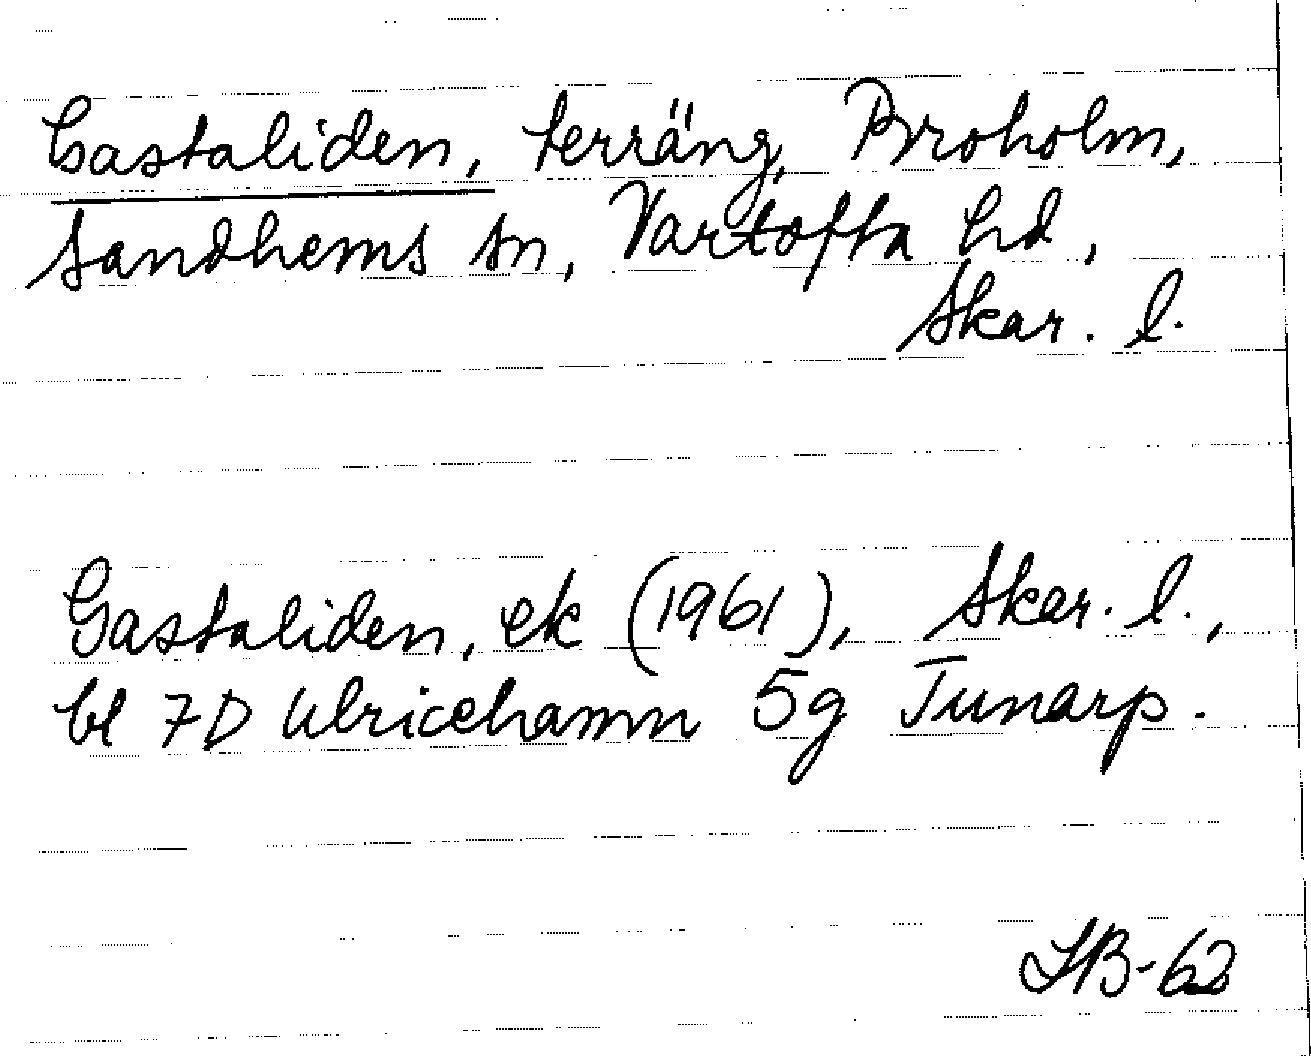 Gastaliden, terräng, Broholm,
Sandhems sn, Vartofta hd,
Skar. l.
Gastaliden, ek (1961), Skar. l.,
bl 7D Ulricehamn 5g Tunarp.
SB-62